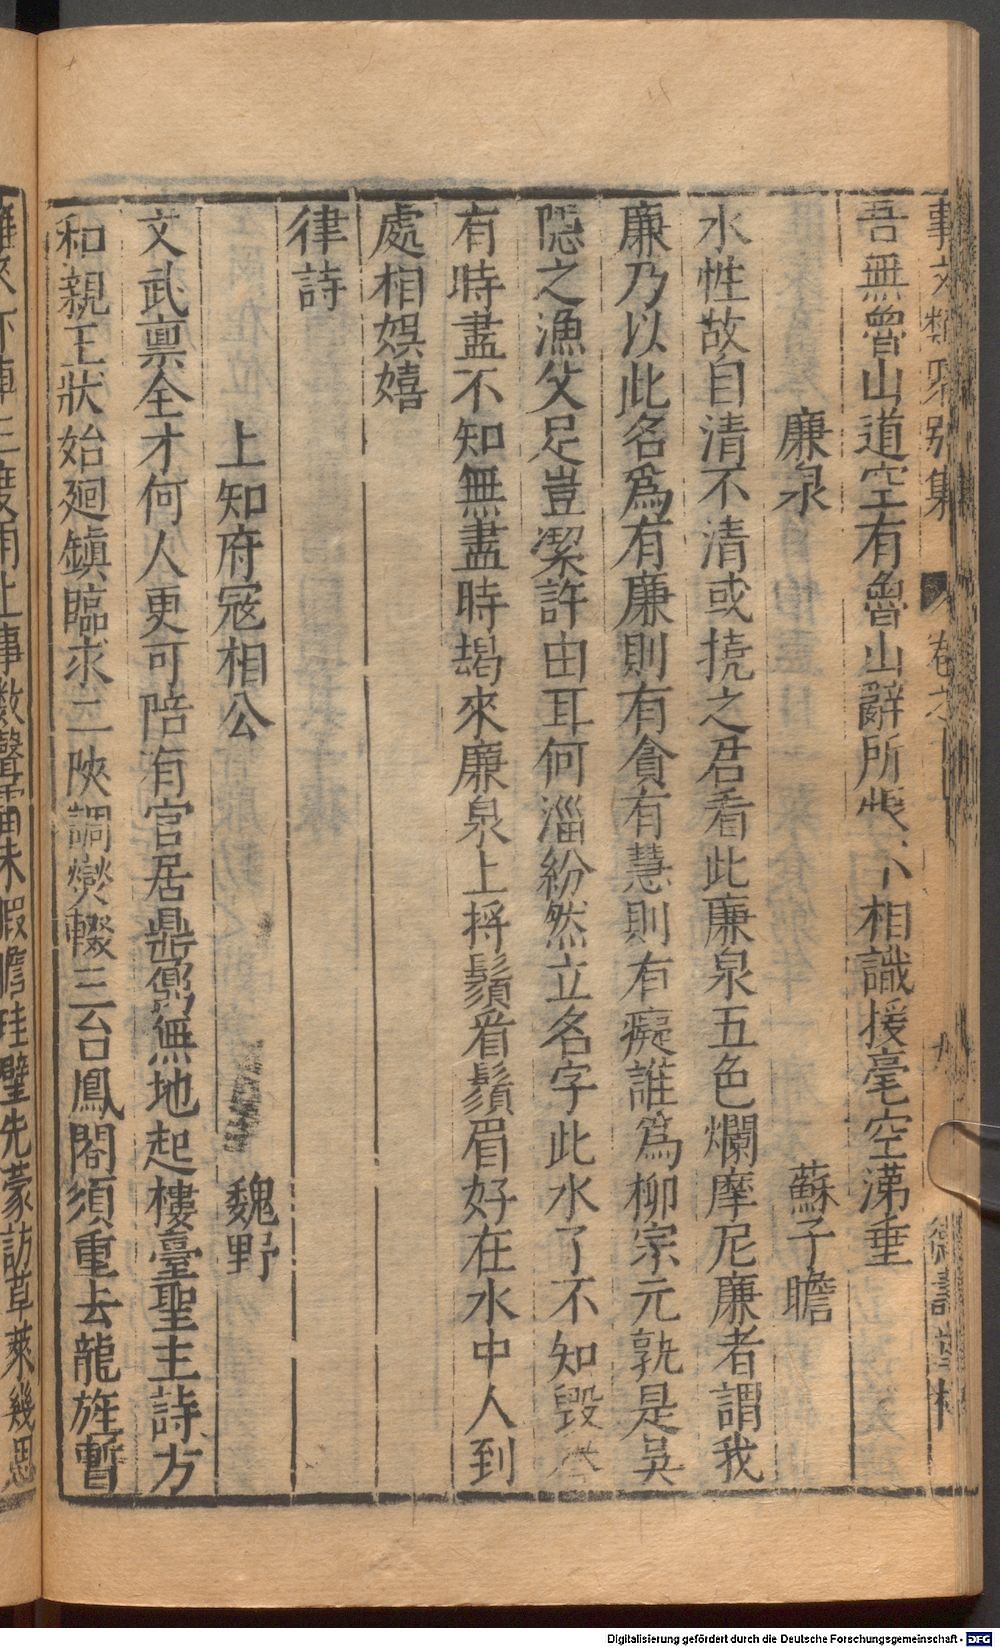 事文類聚別集 卷之
吾無魯山道空有魯山辭所恨不相識援毫空涕垂
廉泉 蘇子瞻
水性故自清不清或撓之君看此廉泉五色爛摩尼廉者謂我
廉乃以此名爲有廉則有貪有慧則有癡誰爲柳宗元孰是吳
隱之漁父足豈潔許由耳何淄紛然立名字此水了不知毀
有時盡不知無盡時朅來廉泉上捋鬚看鬚眉好在水中人到
處相娛嬉
律詩
上知府寇相公 魏野
文武禀全才何人更可陪有官居鼎鼐無地起樓臺聖主詩方
和親王狀始廻鎮臨求二陝調爕輟三台鳳閣須重去龍旌暫
事數聲 未暇膽珪璧先蒙訪草萊幾思
Digitalisierung gefördert durch die Deutsche Forschungsgemeinschaft - DFG